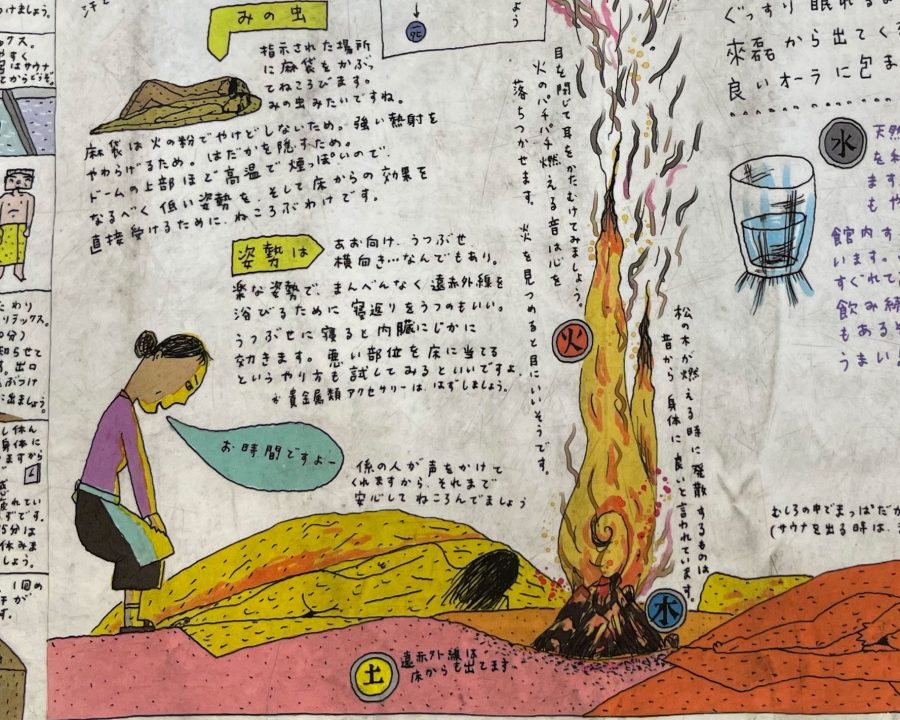 つけましょう。
汗と
みの虫
指示された場所
に麻袋をかぶっ
てねころびます。
みの虫みたいですね。
麻袋は火の粉でやけどしないため。強い熱射を
やわらげるため。はだかを隠すため。
ドームの上部ほど高温で煙っぽいので、
なるべく低い姿勢を、そして床からの効果を
直接受けるために、ねころぶわけです。
姿勢は
あお向け、うつぶせ、
横向き…なんでもあり。
楽な姿勢で、まんべんなく遠赤外線を
浴びるために寝返りをうつのもいい。
うつぶせに寝ると内臓にじかに
効きます。悪い部位を床に当てる
というやり方も試してみるといいですよ。
※貴金属類アクセサリーは、はずしましょう。
お時間ですよー
係の人が声をかけて
くれますから、それまで
安心してねころんでましょう
目を閉じて耳をかたむけてみましょう。
火のパチパチ燃える音は心を
落ちつかせます。炎を見つめると目にいいそうです。
火
松の木が燃える時に発散するものは
昔から身体に良いと言われています。
木
土
遠赤外線は
床からも出てます。
ょう
ぐっすり眠れる
來磊から出てく
良いオーラに包ま
水
天然
を利
ます
もや
館内す
います。
すぐれて
飲み
もある
うまい
むしろの中でまっぱだか
(サウナを出る時は、
ックス。
やすく
はサウナ
とからどうぞ。
わり
リラックス。
0分)
知らせて
す。出口
ぶつけ
に出ましょう。
し休ん
身体に
ますから
感
疲れてい
ずです。
5分は
休みま
しょう。
1回め
汗が
す。